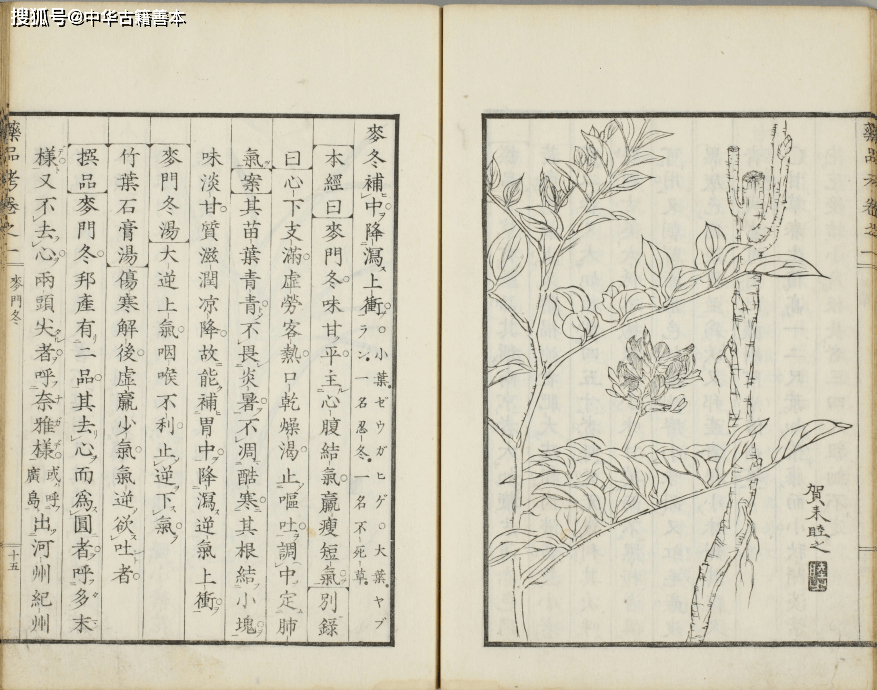 搜狐号@中华古籍善本
賀来睦之
麥冬補中降瀉上衝○小葉ゼウガヒゲ○大葉ヤブラン一名忍冬一名不死草
本經曰麥門冬味甘平主心腹結氣羸瘦短氣別錄
曰心下支滿虛勞客熱口乾燥渴止嘔吐調中定肺
氣案其苗葉青青不畏炎暑不凋酷寒其根結小塊
味淡甘質滋潤凉降故能補胃中降瀉逆氣上衝
麥門冬湯大逆上氣咽喉不利止逆下氣
竹葉石膏湯傷寒解後虛羸少氣氣逆欲吐者
撰品麥門冬邦產有二品其去心而爲圓者呼多末
樣又不去心兩頭尖者呼奈雅樣或呼廣島出河州紀州
藥品考卷之一
麥門冬
十五